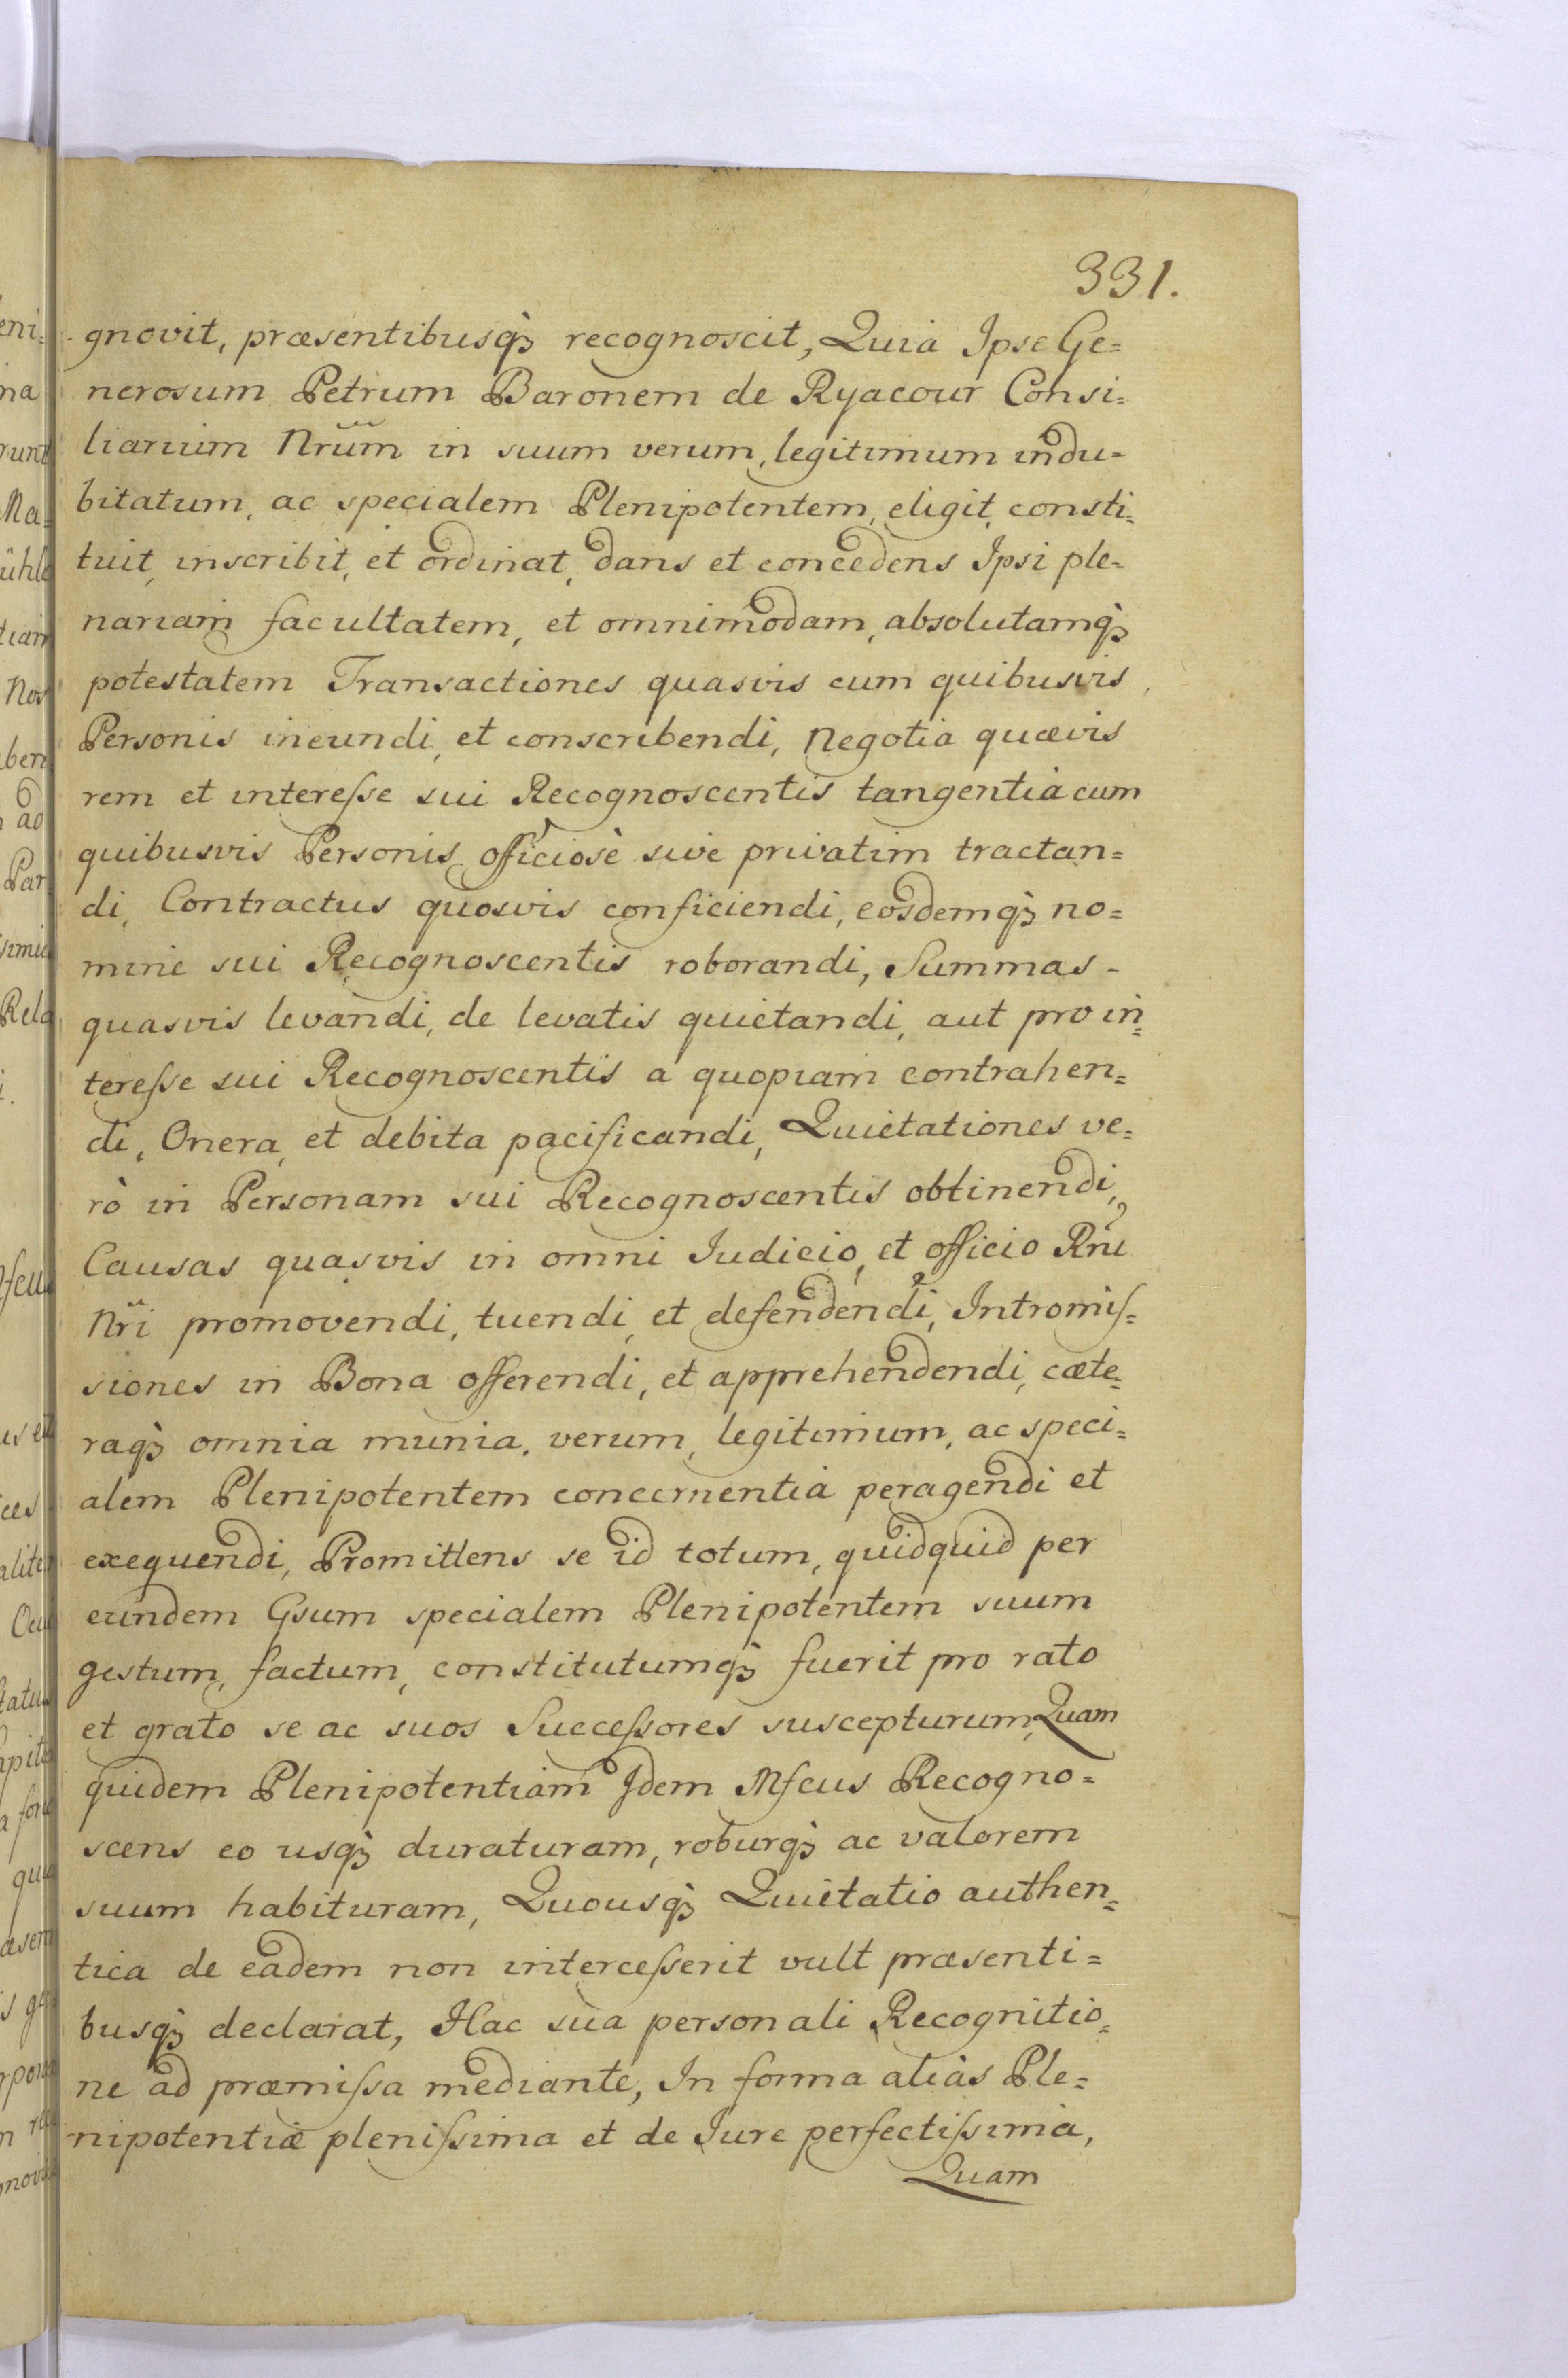 331.
gnovit, præsentibusq̃ recognoscit, Quia Ipse Ge=
nerosum Petrum Baronem de Ryacour Consi=
liarium Nrũm in suum verum, legitimum indu=
bitatum, ac specialem Plenipotentem, eligit, consti=
tuit, inscribit, et ordinat, dans et concedens Ipsi ple=
nariam facultatem, et omnimodam, absolutamq̃
potestatem Transactiones quasvis cum quibusvis,
Personis ineundi, et conscribendi, Negotia quævis
rem et interesse sui Recognoscentis tangentia cum
quibusvis Personis, officiosè sive privatim tractan=
di, Contractus quosvis conficiendi, eosdemq̃ no=
mine sui Recognoscentis roborandi, Summas-
quasvis levandi, de levatis quietandi, aut pro in=
teresse sui Recognoscentis a quopiam contrahen=
di, Onera, et debita pacificandi, Quietationes ve=
rò in Personam sui Recognoscentis obtinendi,
Causas quasvis in omni Iudicio, et officio Rni
Nr̃i promovendi, tuendi, et defendendi, Intromis=
siones in Bona offerendi, et apprehendendi, cæte=
raq̃ omnia munia, verum, legitimum, ac speci=
alem Plenipotentem concernentia peragendi et
exequendi, Promittens se id totum, quidquid per
eundem Gsum specialem Plenipotentem suum
gestum, factum, constitutumq̃ fuerit pro rato
et grato se ac suos Successores suscepturum, Quam
quidem Plenipotentiam Idem Mfcus Recogno=
scens eo usq̃ duraturam, roburq̃ ac valorem
suum habituram, Quousq̃ Quietatio authen=
tica de eadem non intercesserit vult præsenti=
busq̃ declarat, Hac sua personali Recognitio=
ne ad præmissa mediante, In forma aliàs Ple=
nipotentiæ plenissima et de Iure perfectissima,
Quam